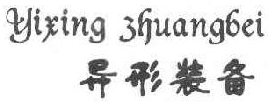 Yixing zhuangbei
异形装备